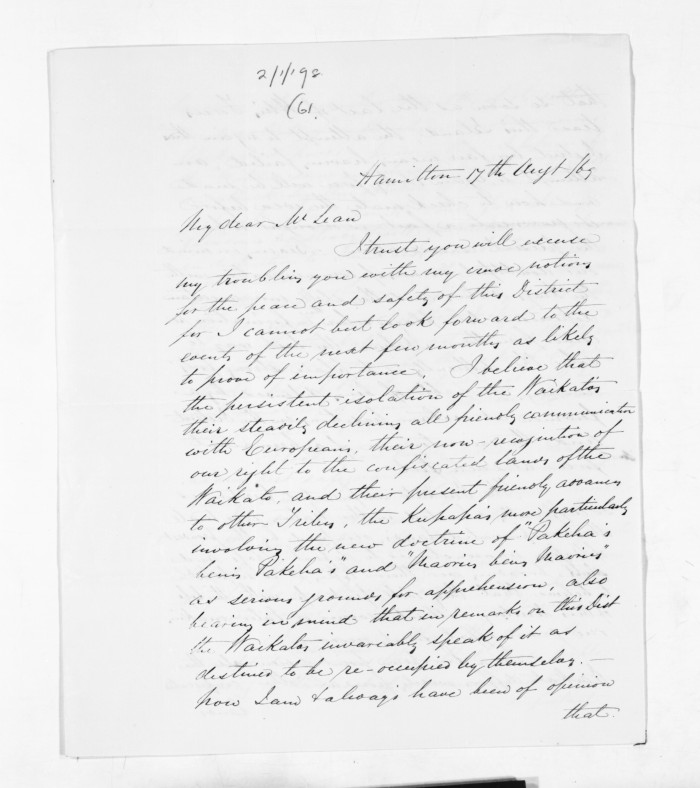 2/1/198
(61.
Hamilton 17th Augt /69
My dear McLean
I trust you will excuse
my troubling you with my crude notions
for the peace and safety of this District
for I cannot but look forward to the
events of the next few months as likely
to prove of importance. I believe that
the persistent isolation of the Waikatos
their steadily declining all friendly communication
with Europeans, their non-recognition of
our right to the confiscated lands of the
Waikato, and their present friendly advances
to other Tribes, the Kupapa's more particularly
involving the new doctrine of "Pakeha's
being Pakeha's" and "Maories being Maories"
as serious grounds for apprehension, also
bearing in mind that in remarks on this Dist
the Waikatos invariably speak of it as
destined to be re-occupied by themselves. —
now I am & always have been of opinion
that